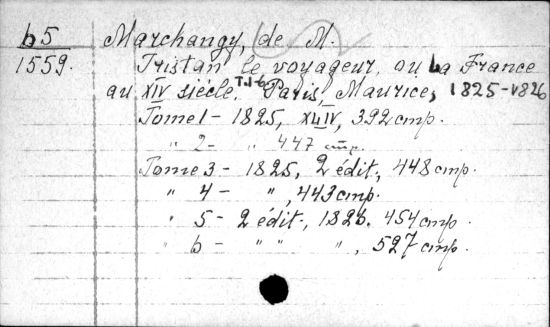 б5
1559.
Marchangy, de M.
Tristan le voyageur, ou La France
au XIV siècle. T.1-6 Paris, Maurice, 1825-1826
Tome 1 - 1825, XLIV, 392 стр.
" 2 - " 447 стр.
Tome 3 - 1825, 2 édit, 448 стр.
" 4 - " , 443 стр.
" 5 - 2 édit, 1826. 454 стр.
" 6 - " " " , 527 стр.